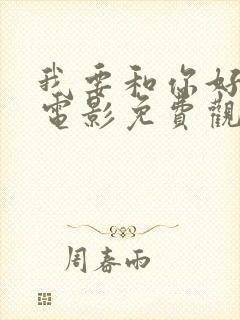 我要和你好
電影免費觀
周春雨